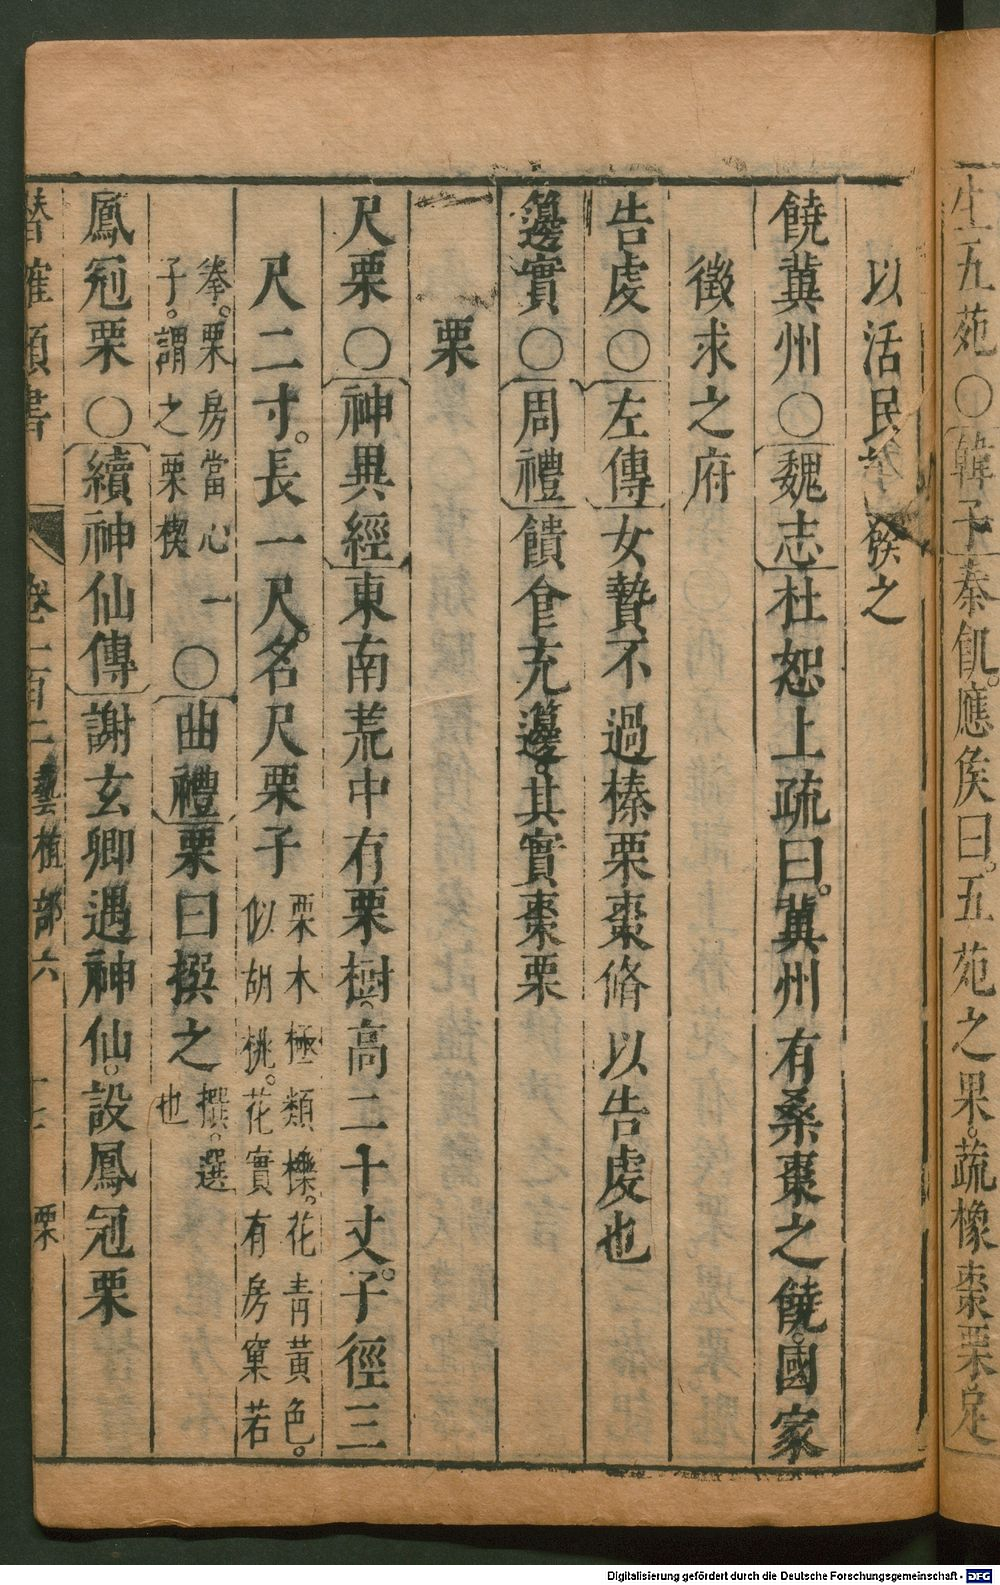 生五苑○韓子秦飢應侯曰五苑之果蔬橡棗栗足
以活民 餱之
饒冀州○魏志杜恕上疏曰冀州有桑棗之饒國家
徵求之府
告虔○左傳女贄不過榛栗棗脩以告虔也
籩實○周禮饋食充籩其實棗栗
栗
尺栗○神異經東南荒中有栗樹高二十丈子徑三
尺二寸長一尺名尺栗子栗木極類櫟花青黃色似胡桃花實有房窠若
拳栗房當心一子謂之栗楔○曲禮栗曰撰之撰選也
鳳冠栗○續神仙傳謝玄卿遇神仙設鳳冠栗
潛確類書 卷一百二 藝植部六 栗
Digitalisierung gefördert durch die Deutsche Forschungsgemeinschaft - DFG